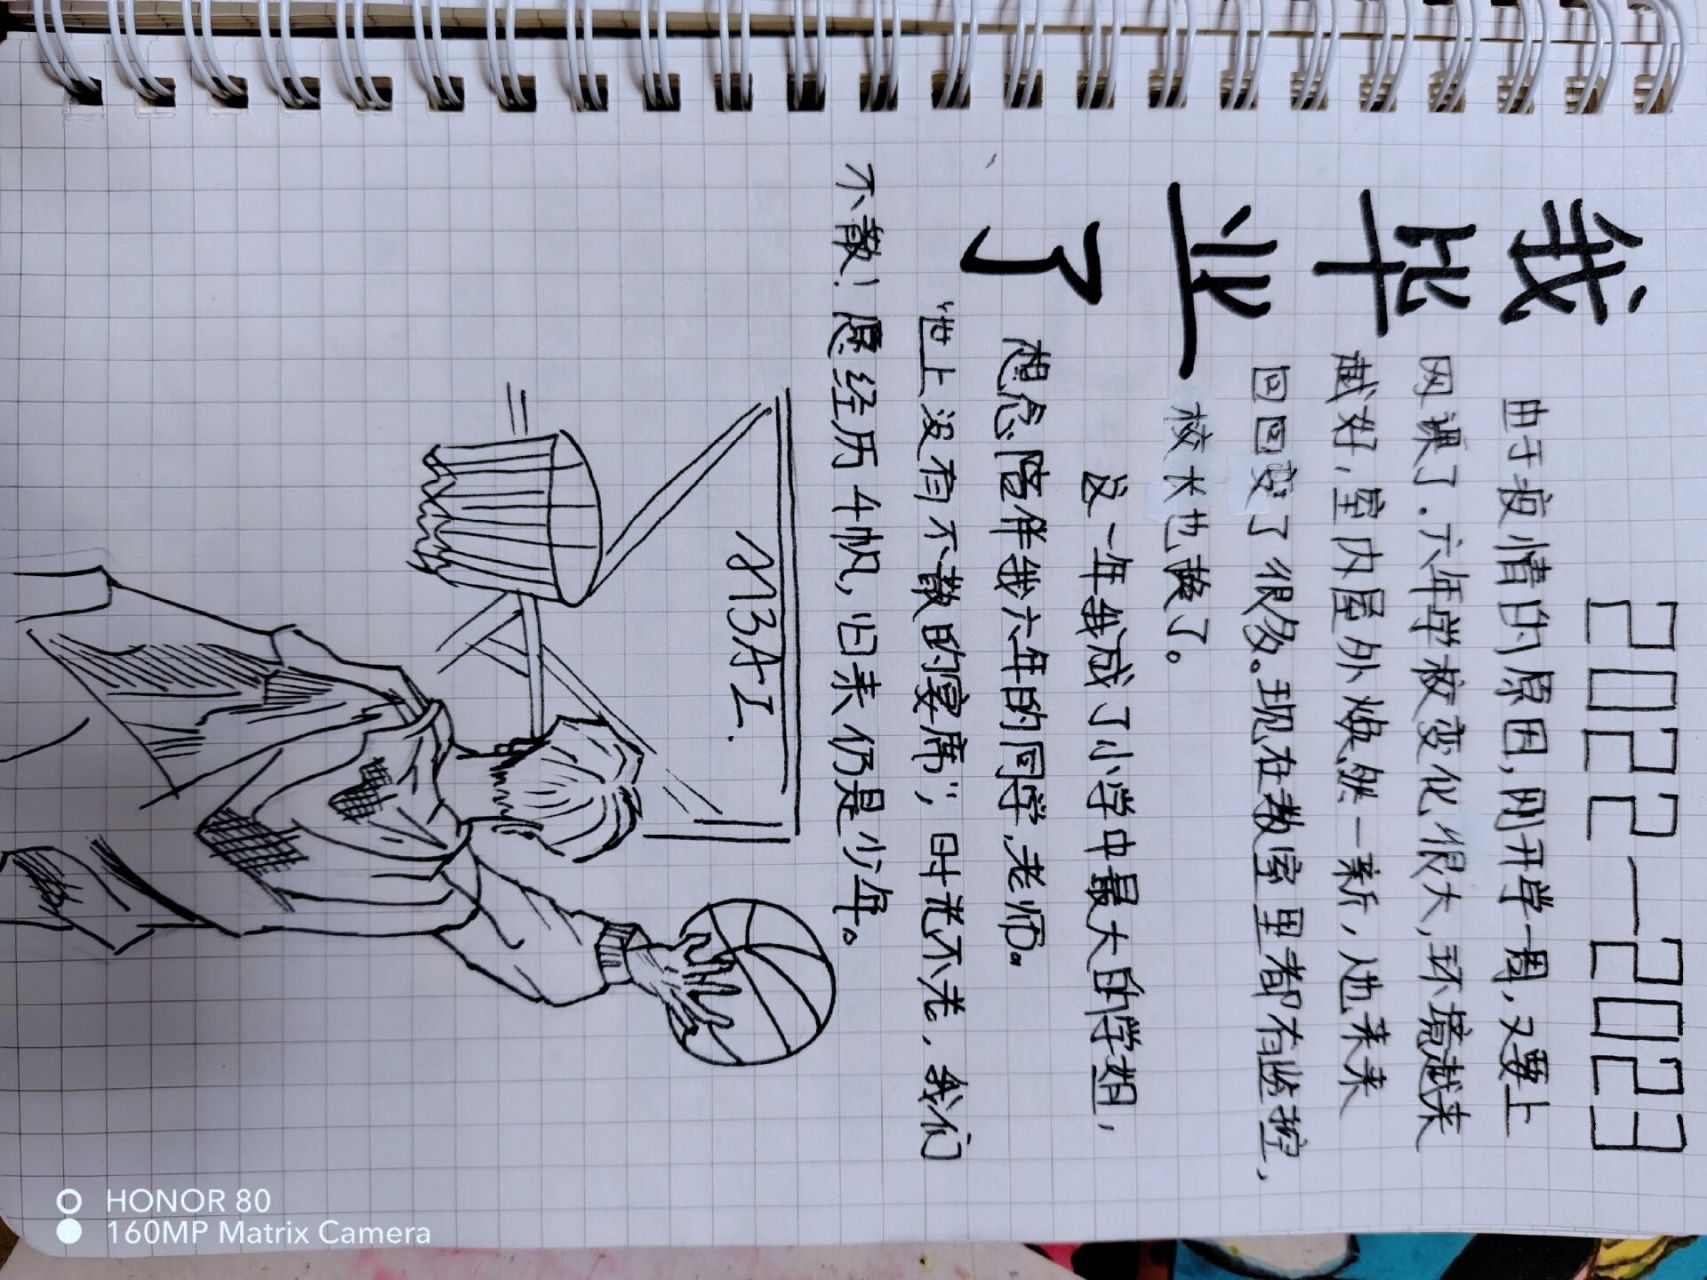 2022—2023
我毕业了
由于疫情的原因，刚开学一周，又要上
网课了．六年学校变化很大，环境越来
越好，室内屋外焕然一新，人也来来
回回变了很多。现在教室里都有监控，
校长也换了。
这一年我成了小学中最大的学姐，
想念陪伴我六年的同学，老师。
“世上没有不散的宴席”，时光不老，我们
不散！愿经历千帆，归来仍是少年。
HONOR 80
160MP Matrix Camera